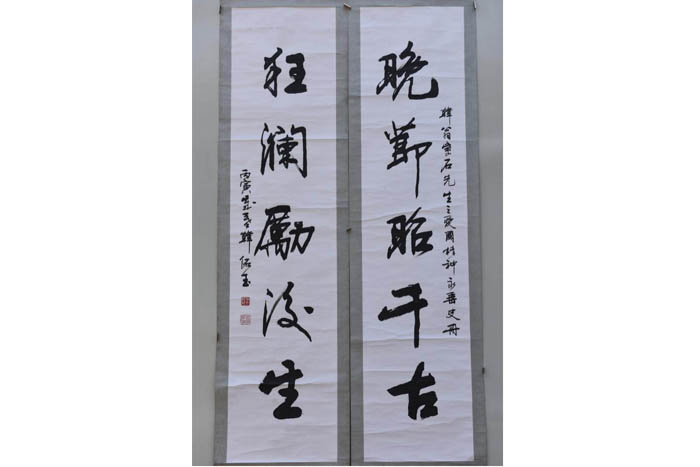 晚節昭千古
韓翁石先生之愛國精神永垂史冊
狂瀾勵後生
丙寅韓